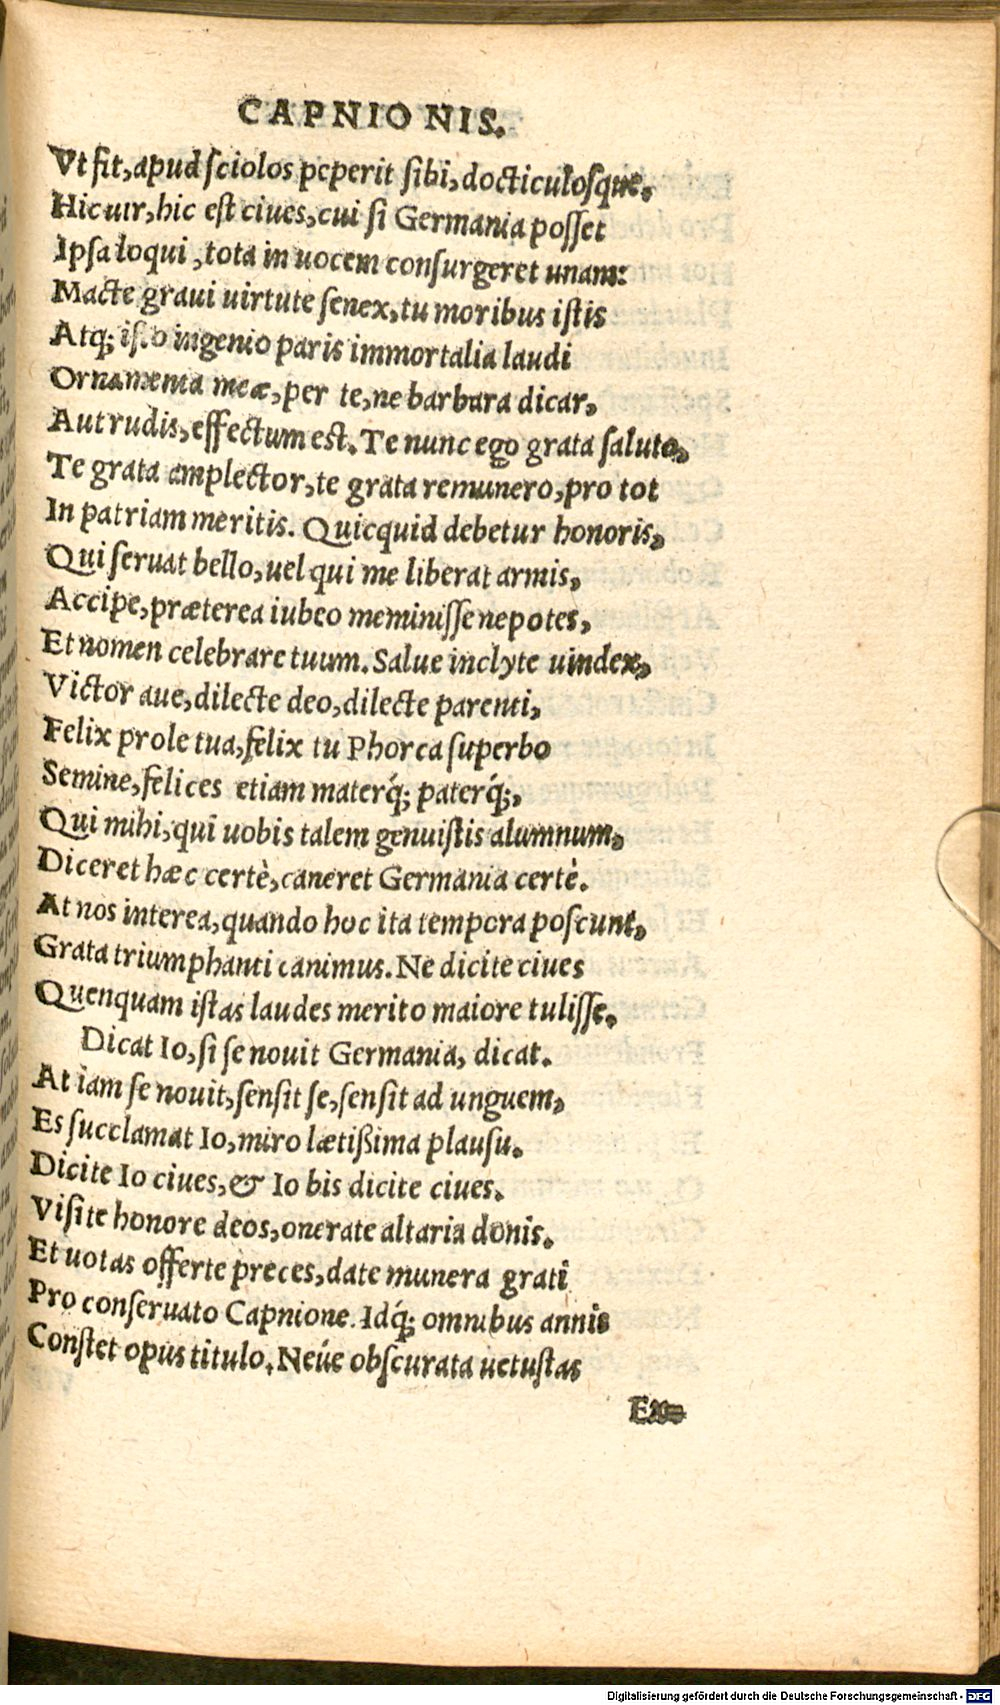 CAPNIONIS.
Vt fit, apud sciolos peperit sibi, docticulosque.
Hic uir, hic est ciues, cui si Germania posset
Ipsa loqui, tota in uocem consurgeret unam:
Macte graui uirtute senex, tu moribus istis
Atq́; isto ingenio paris immortalia laudi
Ornamenta meæ, per te, ne barbara dicar,
Aut rudis, effectum est. Te nunc ego grata saluto,
Te grata amplector, te grata remunero, pro tot
In patriam meritis. Quicquid debetur honoris,
Qui seruat bello, uel qui me liberat armis,
Accipe, præterea iubeo meminisse nepotes,
Et nomen celebrare tuum. Salue inclyte uindex,
Victor aue, dilecte deo, dilecte parenti,
Felix prole tua, felix tu Phorca superbo
Semine, felices etiam materq́; paterq́;,
Qui mihi, qui uobis talem genuistis alumnum,
Diceret hæc certè, caneret Germania certè.
At nos interea, quando hoc ita tempora poscunt,
Grata triumphanti canimus. Ne dicite ciues
Quenquam istas laudes merito maiore tulisse.
Dicat Io, si se nouit Germania, dicat.
At iam se nouit, sensit se, sensit ad unguem,
Es succlamat Io, miro lætißima plausu.
Dicite Io ciues, & Io bis dicite ciues.
Visite honore deos, onerate altaria donis.
Et uotas offerte preces, date munera grati
Pro conseruato Capnione. Idq́; omnibus annis
Constet opus titulo. Neúe obscurata uetustas
Ex=
Digitalisierung gefördert durch die Deutsche Forschungsgemeinschaft - DFG